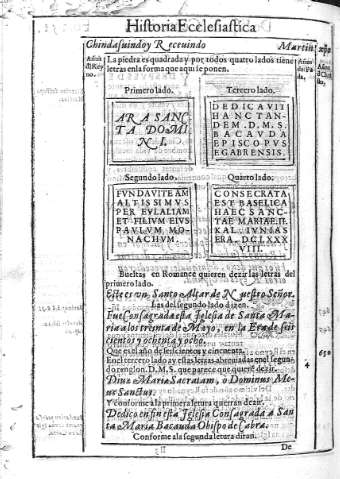 Historia Ecelesiastica
Chindasuindo y Receuindo
Martin!
La piedra es quadrada y por todos quatro lados tiene
letras en la forma que aqui se ponen.
Primero lado.
ARA SANC
TA DOMI
NI.
Tercero lado.
DEDICAVIT
HANC TAN-
DEM. D.M.S.
BACAVDA
EPISCOPVS
EGABRENSIS.
Segundo lado.
FVNDAVIT EAM
ALTISSIMVS
PER EVLALIAM
ET FILIVM EIVS
PAVLVM MO-
NACHVM.
Quarto lado.
CONSECRATA
EST BASELICA
HAEC SANC-
TAE MARIAE. II.
KAL. IVNIAS
ERA. DCLXXX
VIII.
Bueltas en Romance quieren dezir las letras del
primero lado.
Este es vn Santo Altar de Nuestro Señor.
Las del segundo lado dizen.
Fue Consagrada esta Iglesia de Santa Ma
ria a los treinta de Mayo, en la Era de seis
cientos y ochenta y ocho.
Que es el año de seiscientos y cincuenta.
650
En el tercero lado ay estas letras abreuiadas en el segun
do renglon. D.M.S. que parece que quiere dezir.
Diuæ Mariæ Sacratam, o Dominus Me-
Y conforme a la primera letura querran dezir.
Dedico en fin esta Iglesia Consagrada a San
ta Maria Bacauda Obispo de Cabra.
Conforme a la segunda letura diran.
De